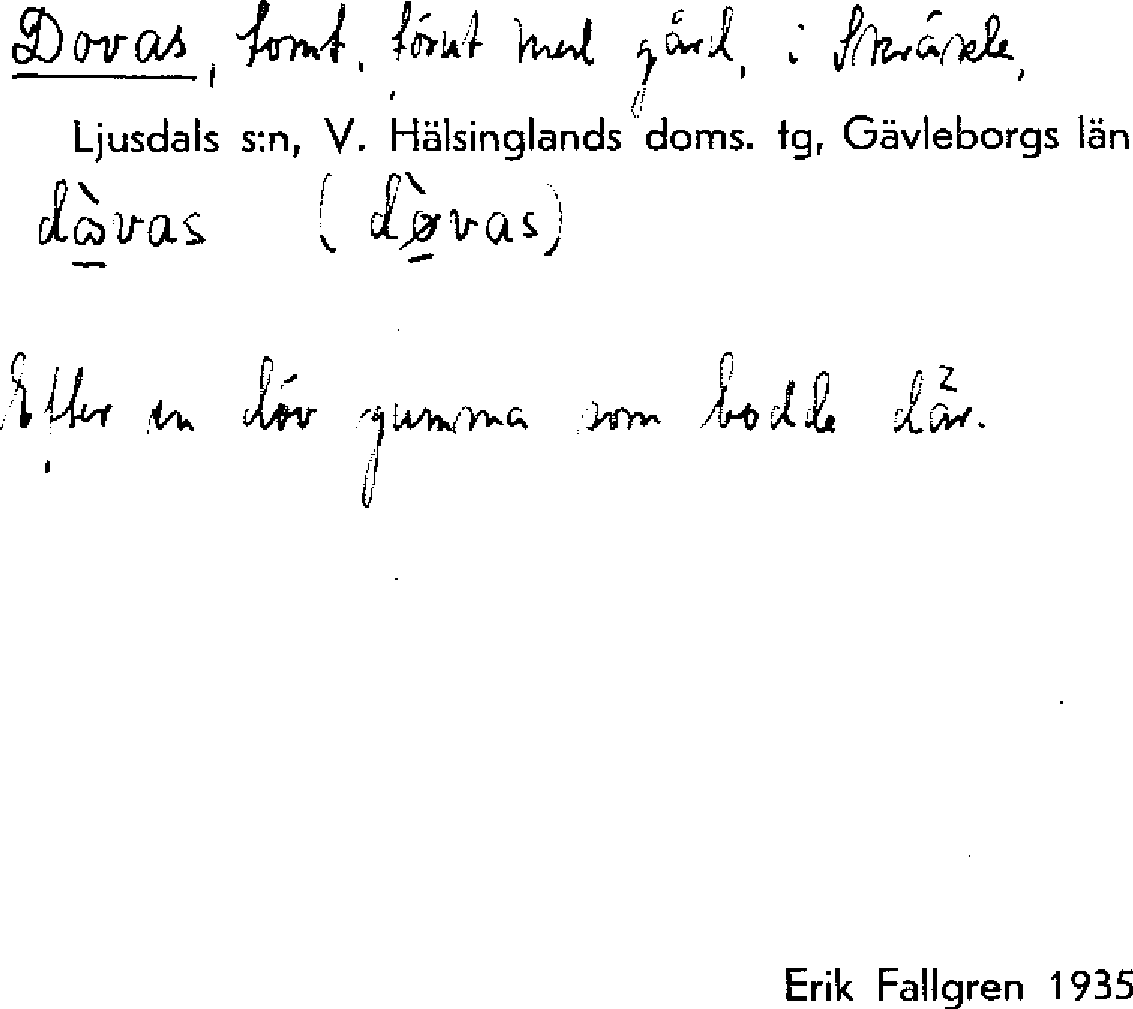 Dovas, tomt, förut med gård, i Skräsele,
Ljusdals s:n, V. Hälsinglands doms. tg, Gävleborgs län
dὼvas (dø̀vas)
Efter en döv gumma som bodde där.
Erik Fallgren 1935